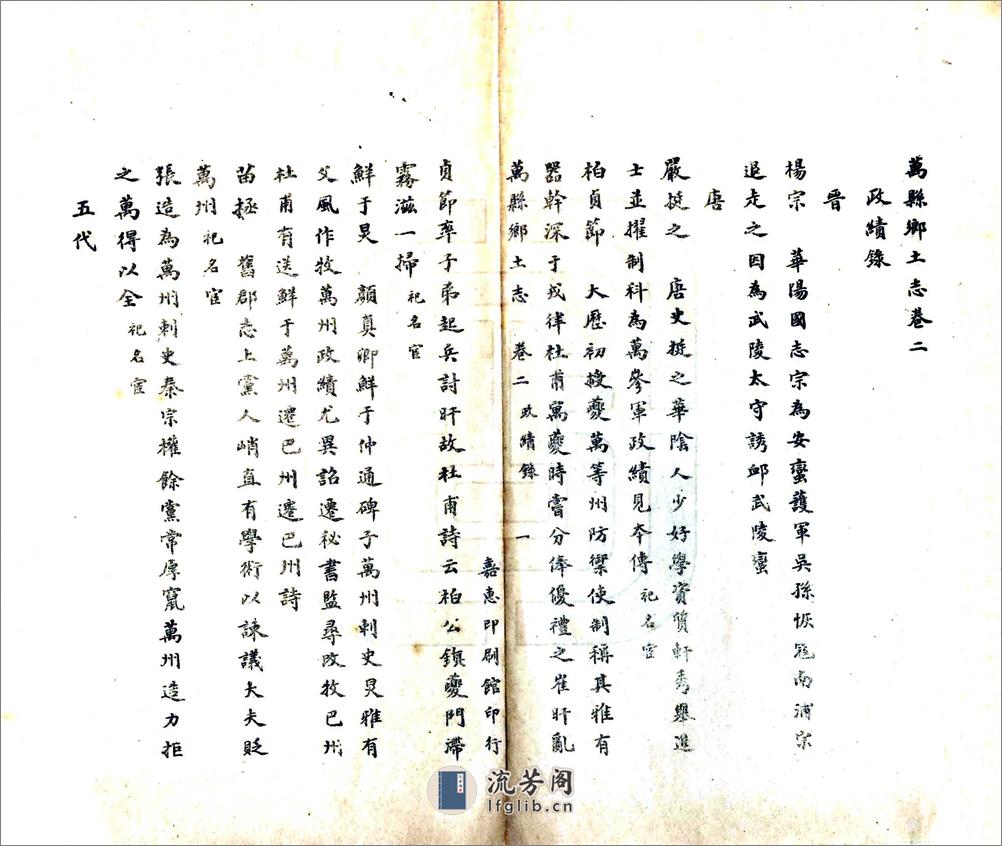 萬縣鄉土志卷二
政績錄
晉
楊宗　華陽國志宗為安蠻護軍吳孫恢寇南浦宗
退走之因為武陵太守誘邱武陵蠻
唐
嚴挺之　唐史挺之華陰人少好學資質軒秀舉進
士並擢制科為萬參軍政績見本傳 祀名宦
柏貞節　大歷初授夔萬等州防禦使制稱其雅有
器幹深于戎律杜甫寓夔時嘗分俸優禮之崔旰亂
萬縣鄉土志 卷二 政績錄 一
嘉惠印刷館印行
貞節率子弟起兵討旰故杜甫詩云柏公鎮夔門滯
霧滋一掃 祀名宦
鮮于炅　顏真卿鮮于仲通碑子萬州刺史炅雅有
父風作牧萬州政績尤異詔遷祕書監尋改牧巴州
杜甫有送鮮于萬州遷巴州遷巴州詩
苗拯　舊郡志上黨人峭直有學術以諫議大夫貶
萬州 祀名宦
張造為萬州刺史秦宗權餘黨常厚竄萬州造力拒
之萬得以全 祀名宦
五代
流芳阁
lfglib.cn